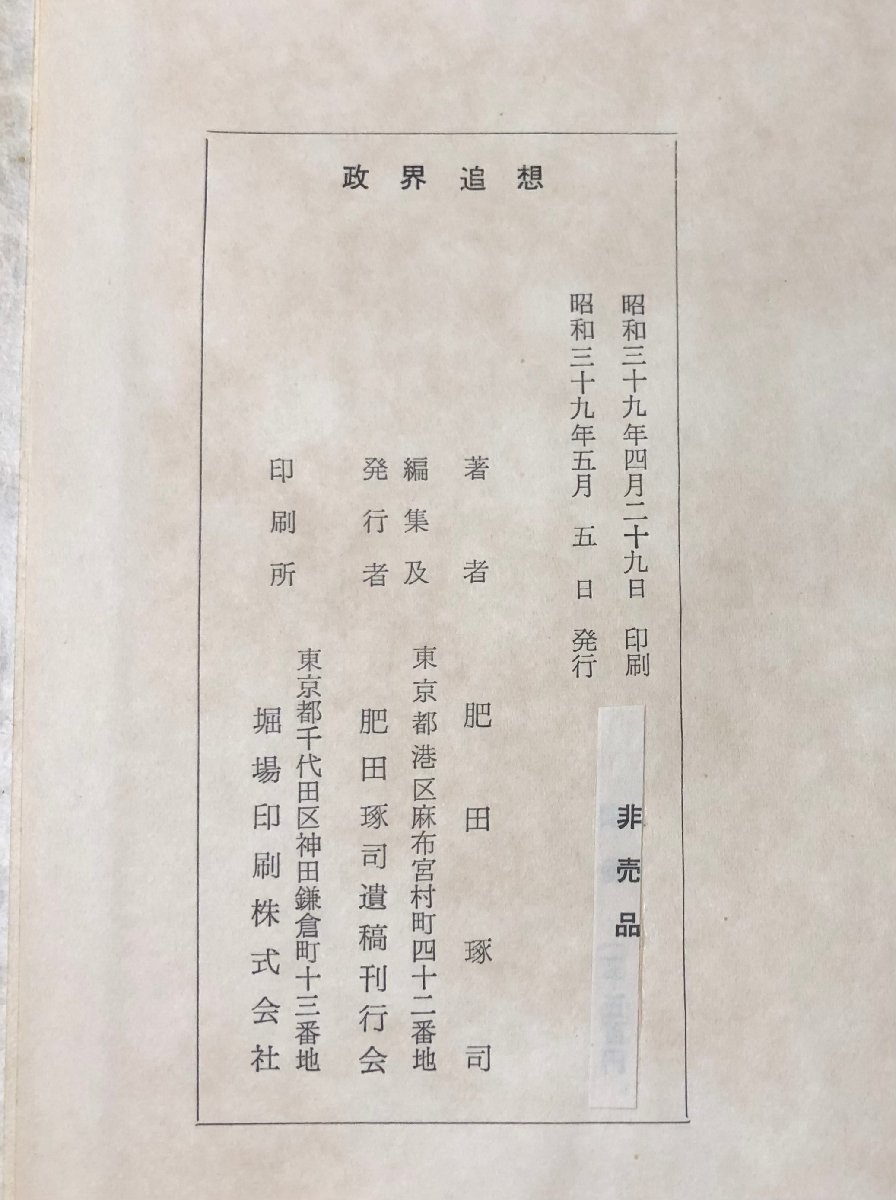 政界追想
昭和三十九年四月二十九日 印刷
昭和三十九年五月 五 日 発行
非売品
著者 肥田琢司
編集及
発行者
東京都港区麻布宮村町四十二番地
肥田琢司遺稿刊行会
印刷所
東京都千代田区神田鎌倉町十三番地
堀場印刷株式会社